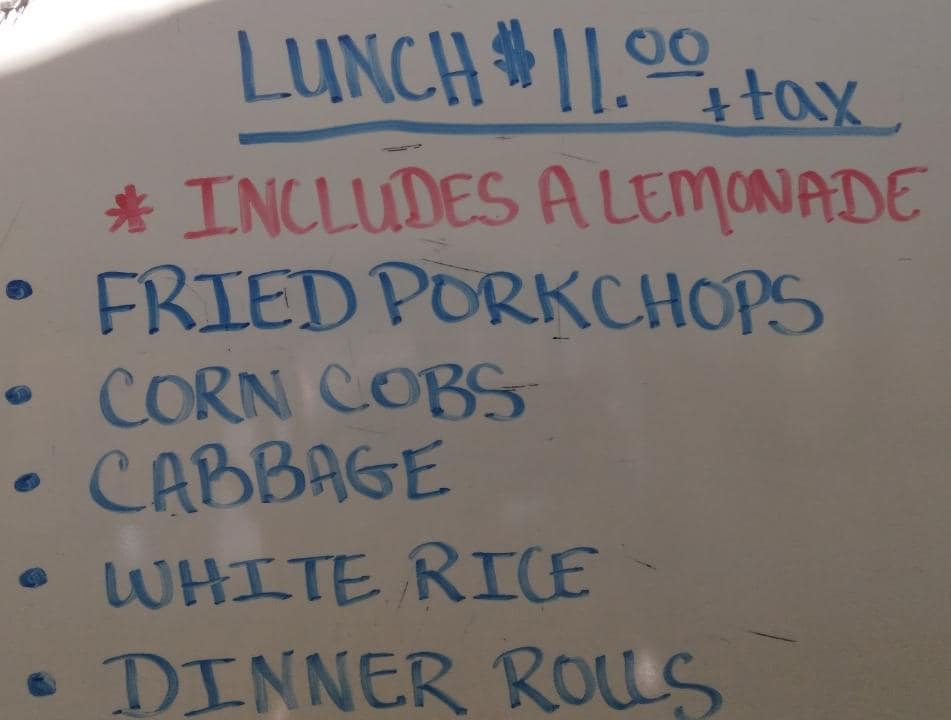 LUNCH $11.00 + tax
* INCLUDES A LEMONADE
• FRIED PORKCHOPS
• CORN COBS
• CABBAGE
• WHITE RICE
• DINNER ROLLS